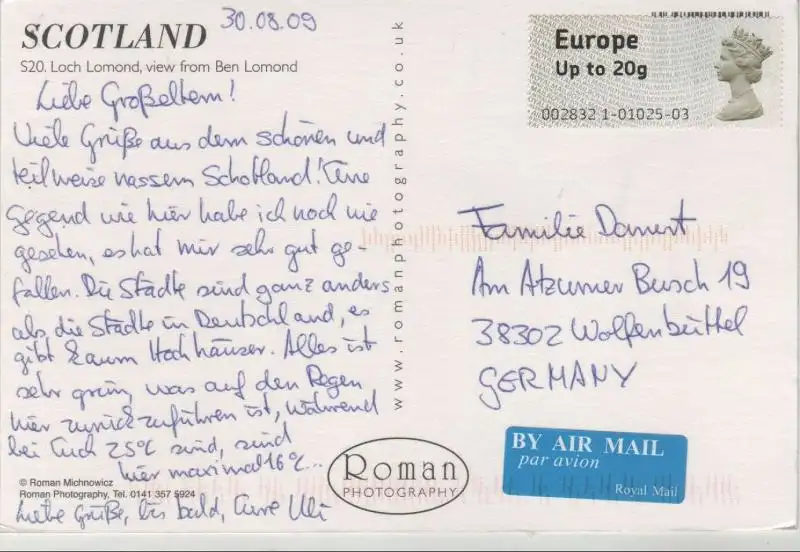 30.08.09
SCOTLAND
S20. Loch Lomond, view from Ben Lomond
Liebe Großeltern!
Viele Grüße aus dem schönen und
teilweise nassem Schottland! Eine
Gegend wie hier habe ich noch nie
gesehen, es hat mir sehr gut ge-
fallen. Die Städte sind ganz anders
als die Städte in Deutschland, es
gibt kaum Hochhäuser. Alles ist
sehr grün, was auf den Regen
hier zurückzuführen ist, während
bei Euch 25°C sind, sind
hier maximal 16°C...
© Roman Michnowicz
Roman Photography, Tel. 0141 357 5924
Liebe Grüße, bis bald, Eure Uli
www.romanphotography.co.uk
Roman
PHOTOGRAPHY
Europe
Up to 20g
002832 1-01025-03
Familie Danert
Am Atzumer Busch 19
38302 Wolfenbüttel
GERMANY
BY AIR MAIL
par avion
Royal Mail